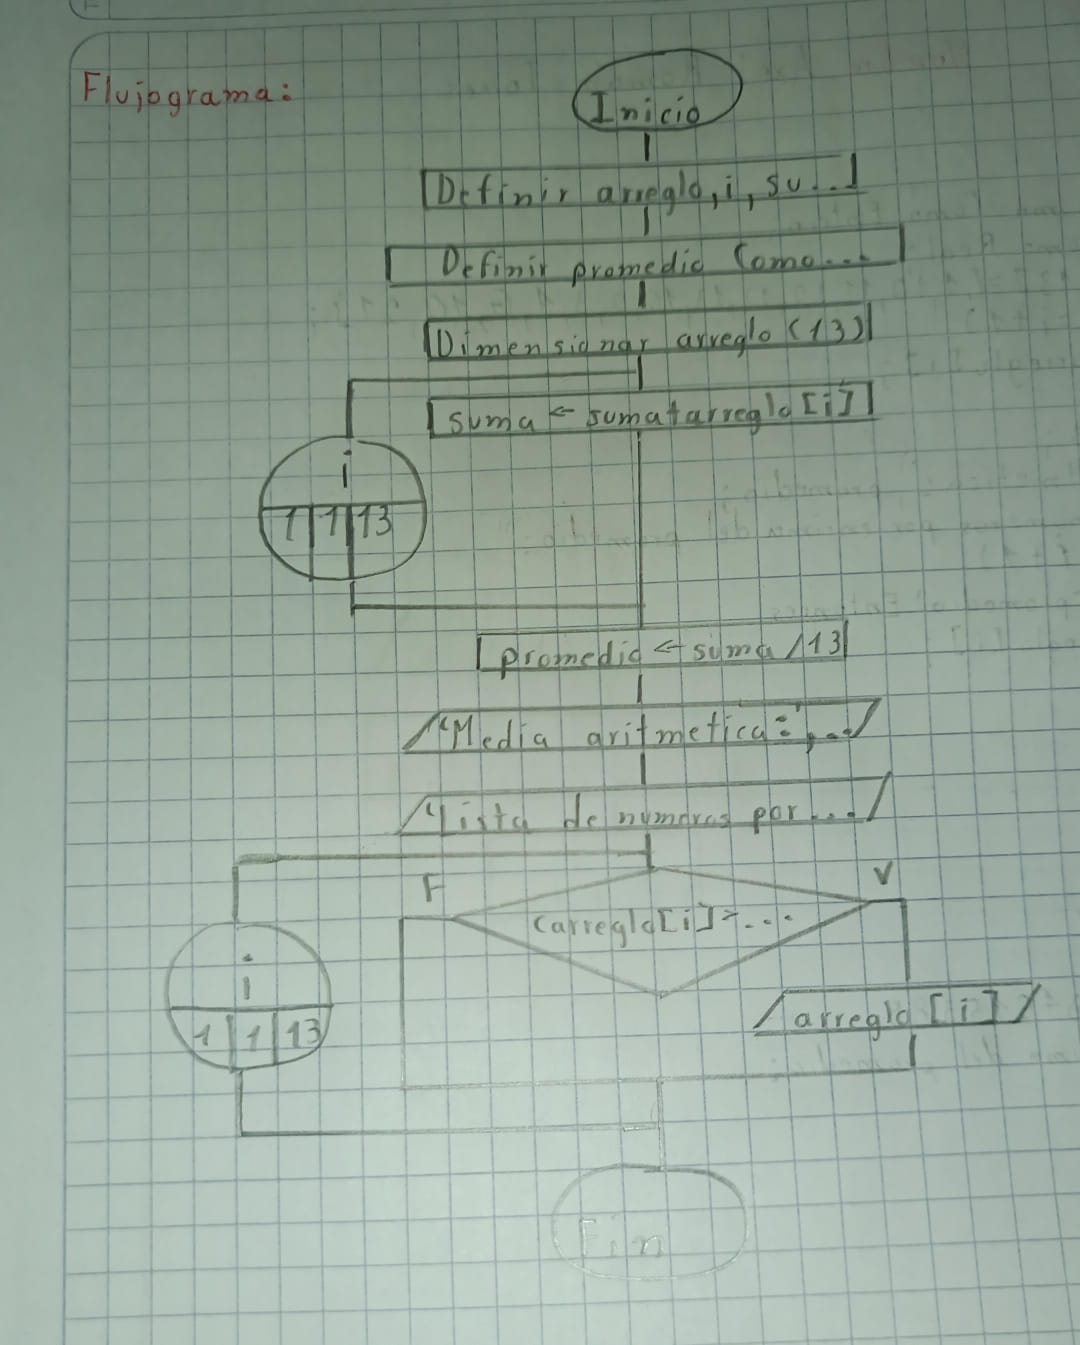 Flujograma:
Inicio
Definir arreglo, i, su...
Definir promedio Como...
Dimensionar arreglo (13)
suma ← suma+arreglo[i]
i
1 1 13
promedio ← suma /13
"Media aritmetica:",..
"Lista de numeros por...
F
V
(arreglo[i]>...
i
1 1 13
arreglo [i]
Fin